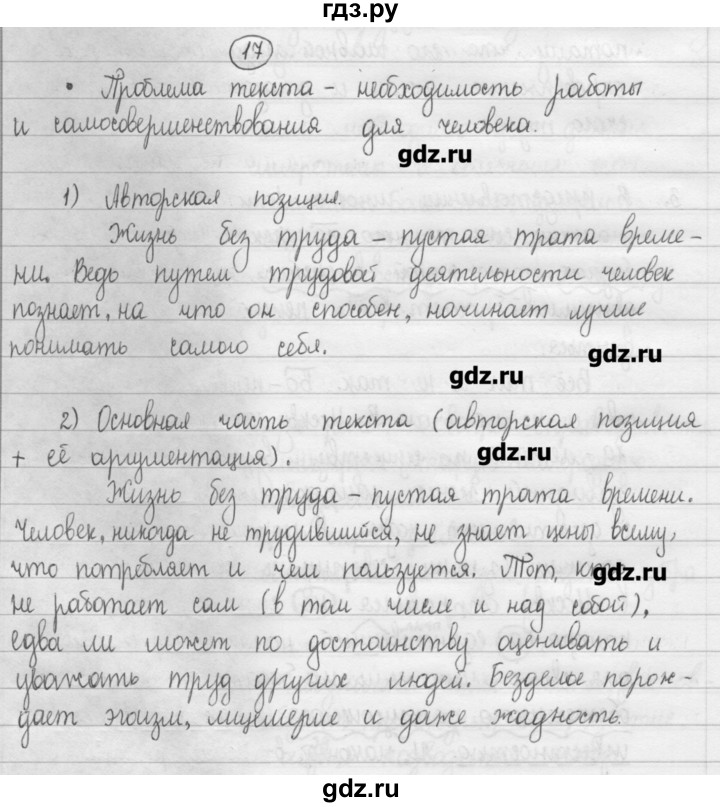 гдз.ру
17
• Проблема текста – необходимость работы
и самосовершенствования для человека.
gdz.ru
1) Авторская позиция.
Жизнь без труда – пустая трата време-
ни. Ведь путем трудовой деятельности человек
познает, на что он способен, начинает лучше
понимать самого себя.
gdz.ru
gdz.ru
2) Основная часть текста (авторская позиция
+ её аргументация).
gdz.ru
Жизнь без труда – пустая трата времени.
Человек, никогда не трудившийся, не знает цены всему,
что потребляет и чем пользуется. Тот, кто
gdz.ru
не работает сам (в том числе и над собой),
едва ли может по достоинству оценивать и
уважать труд других людей. Безделье порож-
дает эгоизм, лицемерие и даже жадность.
gdz.ru